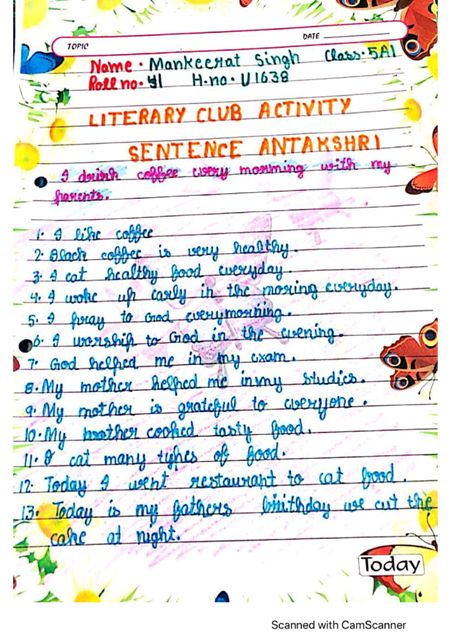 TOPIC
DATE
Name · Mankeerat Singh Class · 5A1
Roll no · 41 H·no · U1638
LITERARY CLUB ACTIVITY
SENTENCE ANTAKSHRI
I drink coffee every morning with my
parents.
1. I like coffee
2. Black coffee is very healthy.
3. I eat healthy food everyday
4. I woke up early in the moring everyday.
5. I pray to God everymorning.
6. I worship to God in the evening.
7. God helped me in my exam.
8. My mother helped me in my studies.
9. My mother is grateful to everyone.
10. My brother cooked tasty food.
11. I eat many types of food.
12. Today I went restaurant to eat food.
13. Today is my fathers birthday we cut the
cake at night.
Today
Scanned with CamScanner